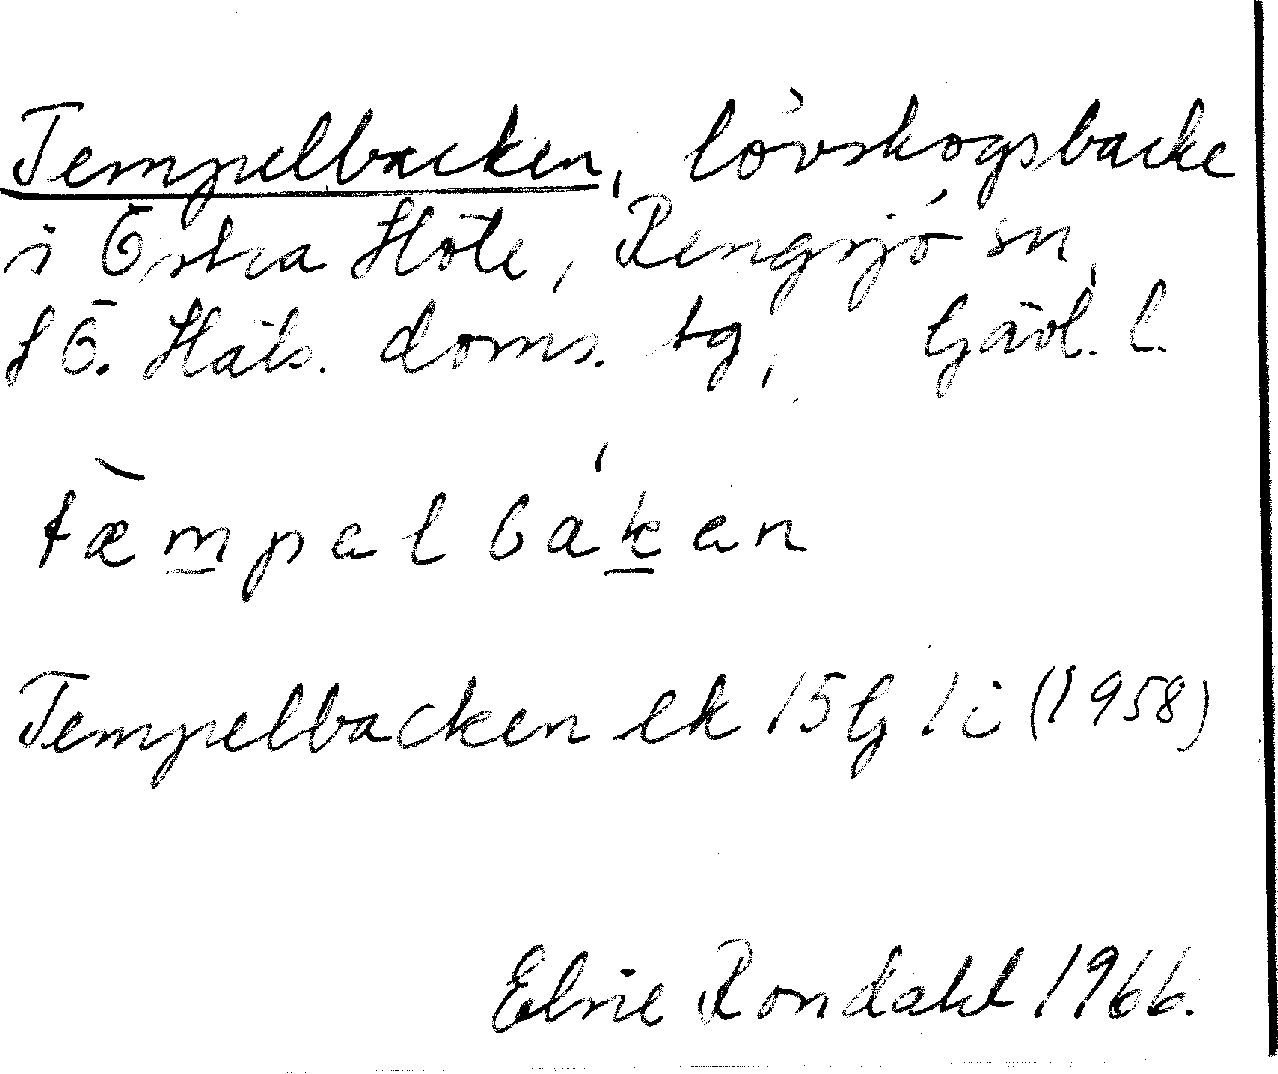 Tempelbacken, lövskogsbacke
i Östra Höle, Rengsjö sn,
f Ö. Häls. doms. tg, Gävl. l.
tæmpəlbakən
Tempelbacken ek 15G 1i (1958)
Elsie Rondahl 1966.